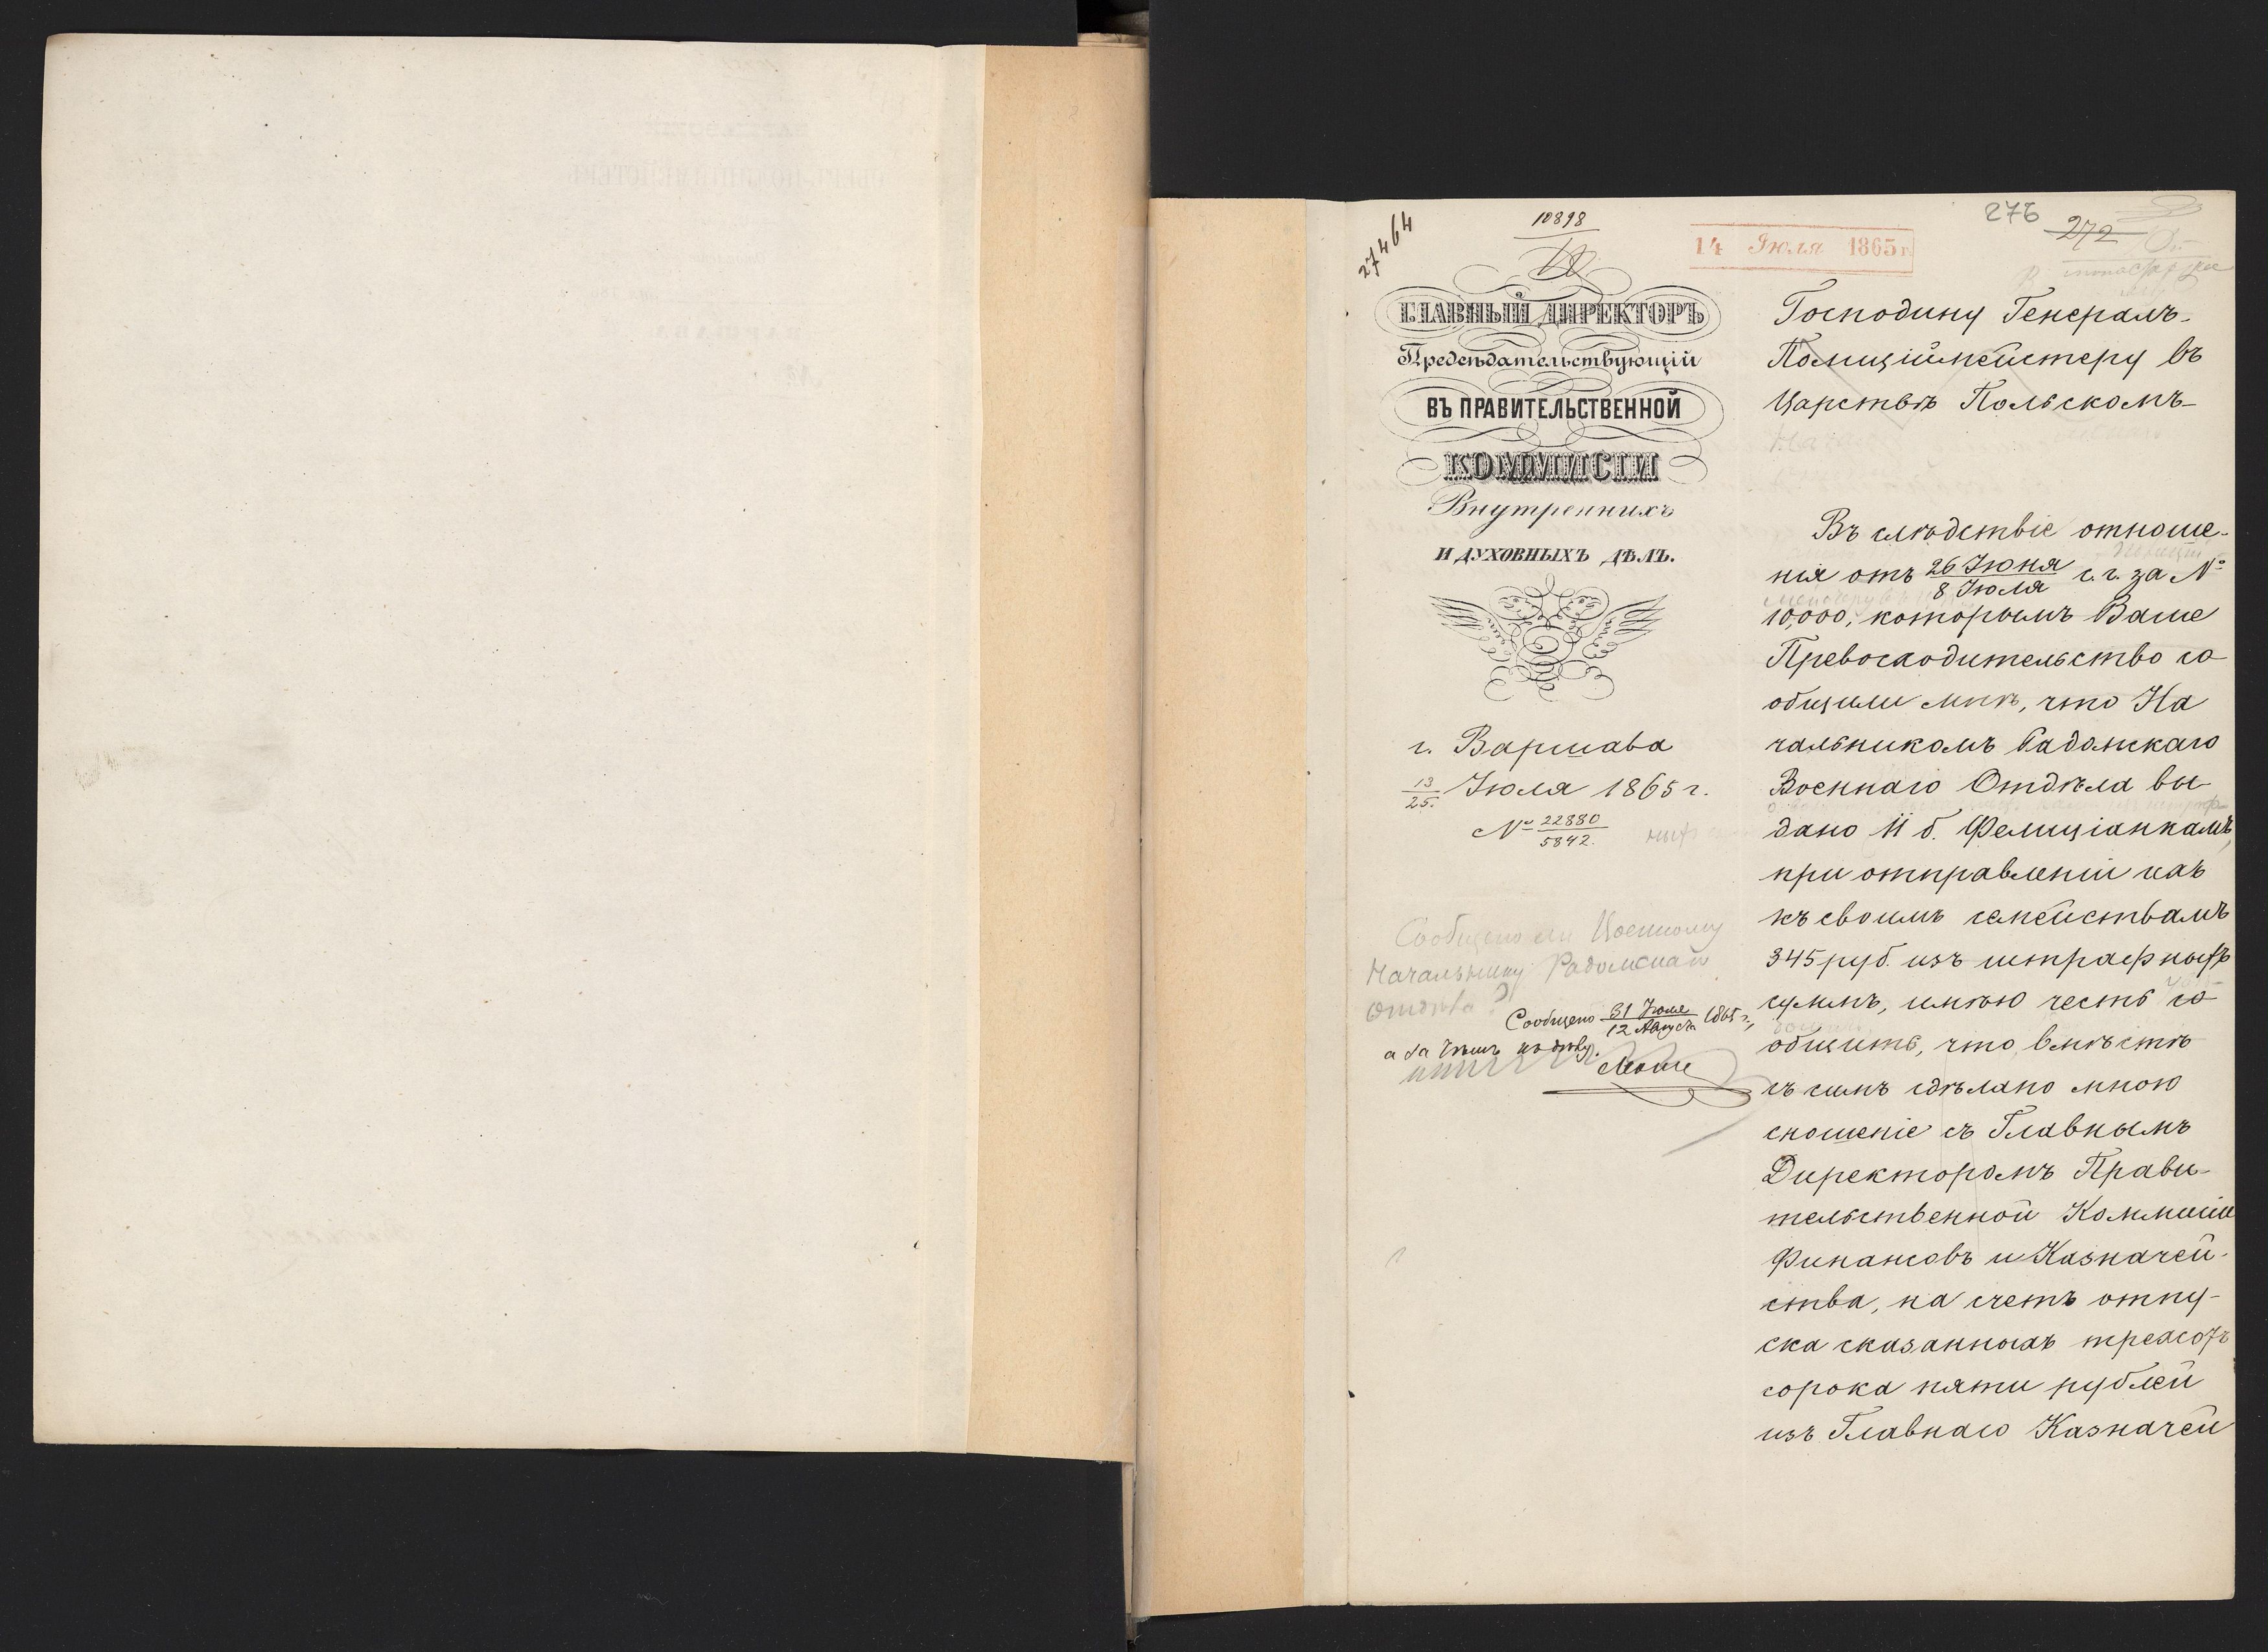 27464
10898
14 Июля 1865 г.
276
272
ГЛАВНЫЙ ДИРЕКТОРЪ
Предсѣдательствующій
ВЪ ПРАВИТЕЛЬСТВЕННОЙ
КОММИСІИ
Внутреннихъ
И ДУХОВНЫХЪ ДѢЛЪ.
г. Варшава
13/25. Іюля 1865 г.
№ 22880/5842.
Сообщено ли Военному
Начальнику Радомскаго
Отдѣла?
Сообщено 31 Іюля/12 Августа 1865 г.,
а за тѣмъ къ дѣлу.
Господину Генералъ-
Полиціймейстеру въ
Царствѣ Польскомъ
Въ слѣдствіе отноше-
нія отъ 26 Іюня/8 Іюля с. г. за №
10,000, которымъ Ваше
Превосходительство со
общили мнѣ, что На
чальникомъ Радомскаго
Военнаго Отдѣла вы
дано 11 б. Фелиціанкамъ,
при отправленіи ихъ
къ своимъ семействамъ
345 руб. изъ штрафныхъ
суммъ, имѣю честь со
общить, что вмѣстѣ
съ симъ сдѣлано мною
сношеніе съ Главнымъ
Директоромъ Прави-
тельственной Коммисіи
Финансовъ и Казначей-
ства, на счетъ отпу-
ска сказанныхъ трехсотъ
сорока пяти рублей
изъ Главнаго Казначей